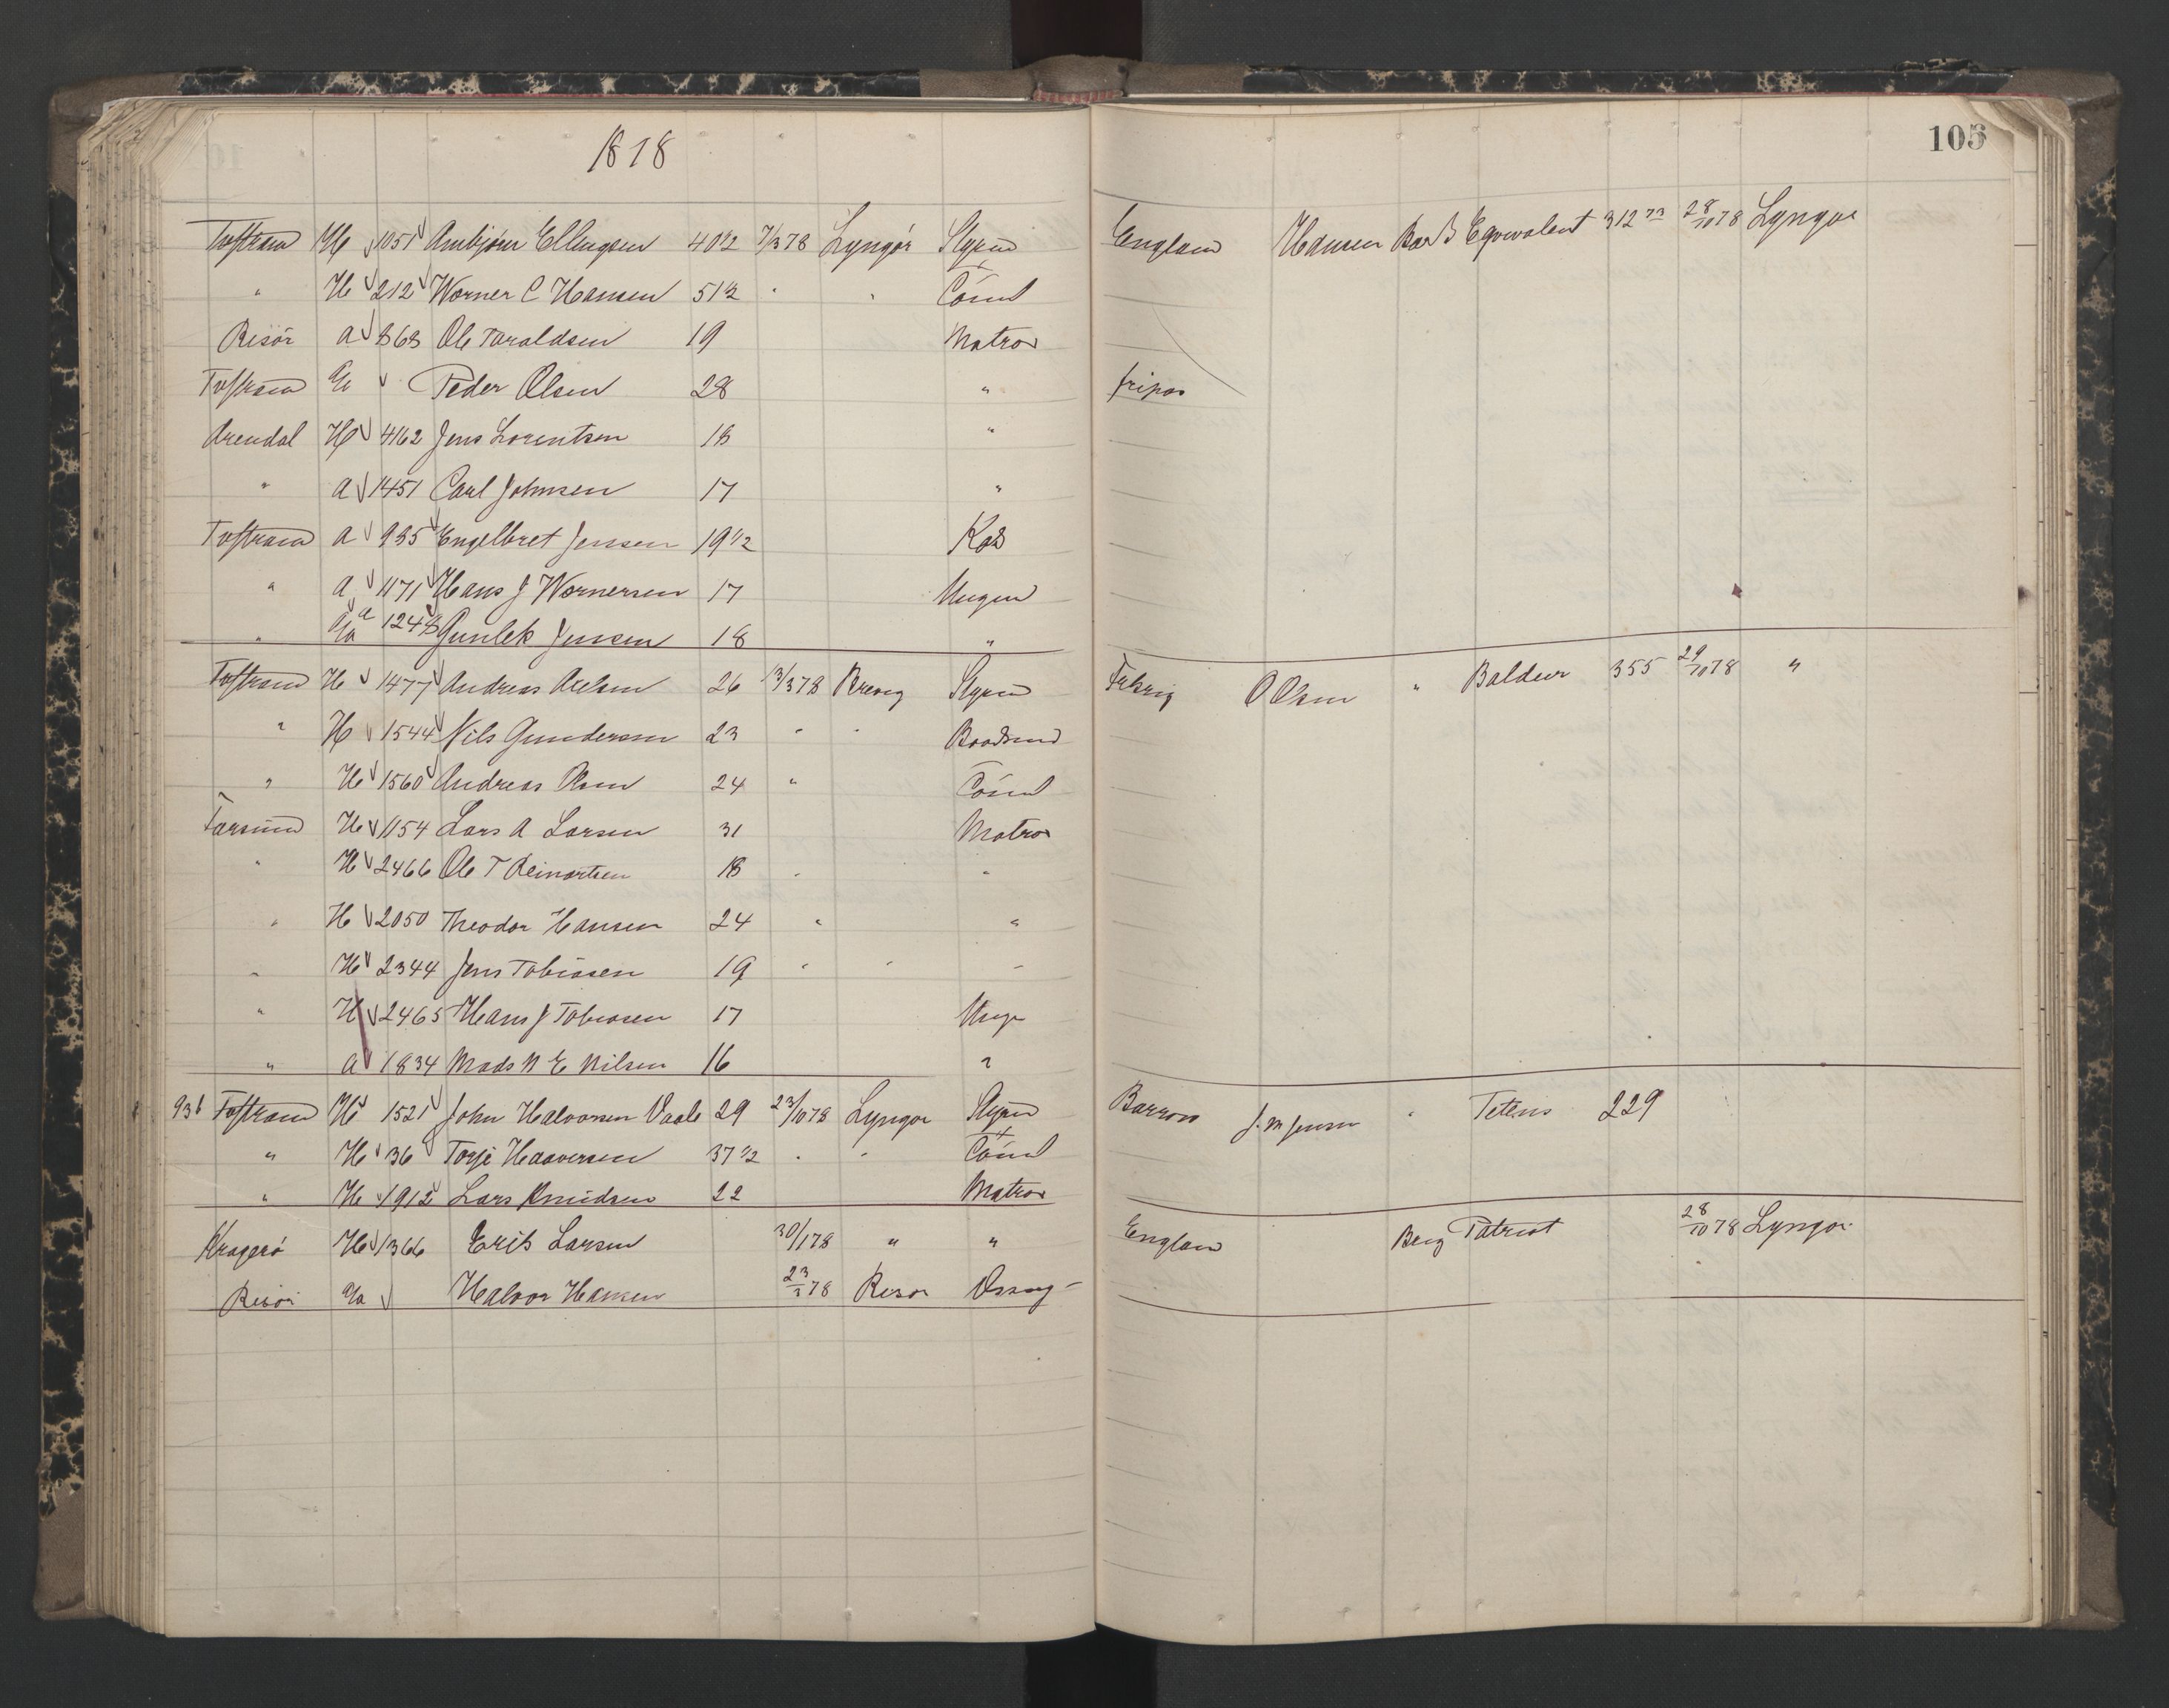 1878
105
Tvstrand H 1051 Anbjørn Ellingsen 40 1/2 7/3 78 Lyngør Styrm England Hansen Bark Eqvivalent 312 73 28/10 78 Lyngør
" H 212 Worner C Hansen 51 1/2 " " Tömd
Risör a 868 Ole Taraldsen 19 Matros
Tvstrand Peder Olsen 28 " fripas
Arendal H 4162 Jens Lorentsen 18 "
" a 1451 Carl Johnsen 17 "
Tvstrand a 935 Engelbret Jensen 19 1/2 Kok
" a 1171 Hans J Wornersen 17 Ungm
" a 1248 Gunlek Jensen 18 "
Tvstrand H 1477 Andreas Axelsen 26 13/3 78 Brevig Styrm O Olsen " Baldur 355 29/10 78 "
" H 1544 Nils Gundersen 23 " " Baadsmd
" H 1560 Andreas Olsen 24 " Tömd
Farsund H 1154 Lars A Larsen 31 Matros
" H 2466 Ole T Reinartsen 18 " "
" H 2050 Theodor Hansen 24 " "
" H 2344 Jens Tobiasen 19 " " "
" H 2465 Hans J Tobiasen 17 Ungm
" a 1834 Mads N E Nilsen 16 "
936 Tvstrand H 1521 John Halvorsen Vaale 29 23/10 78 Lyngør Styrm Barrow J. M Jensen " Tetens 229
" H 36 Torje Haaversen 37 1/2 " " Tömd
" H 1912 Lars Knudsen 22 Matros
Kragerö H 1366 Erik Larsen 30/1 78 " " England Berg Patriot 28/10 78 Lyngør
Risör Halvor Hansen 23/3 78 Risør